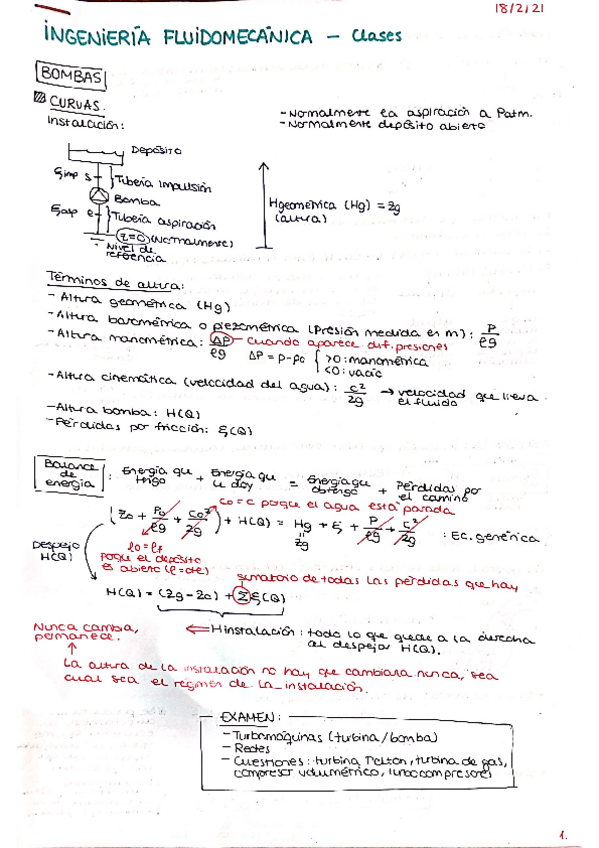 18/2/21
INGENIERÍA FLUIDOMECÁNICA - Clases
BOMBAS
CURVAS.
Instalación:
- Normalmente la aspiración a Patm.
- Normalmente depósito abierto
Depósito
ξimp s
Tubería impulsión
Bomba
ξasp e
Tubería aspiración
z=0 (Normalmente)
Nivel de
referencia
Hgeométrica (Hg) = zg
(altura)
Términos de altura:
- Altura geométrica (Hg)
- Altura barométrica o piezométrica (Presión medida en m): P/ρg
- Altura manométrica: ΔP/ρg - cuando aparece dif. presiones
ΔP = P-P0 { >0: manométrica
<0: vacío
- Altura cinemática (velocidad del agua): c²/2g → velocidad que lleva
el fluido
- Altura bomba: H(Q)
- Pérdidas por fricción: ξ(Q)
Balance
de
energía
: Energía que tengo + Energía que le doy = Energía que obtengo + Pérdidas por el camino
c0=c porque el agua está parada
(z0 + P0/ρg + c0²/2g) + H(Q) = Hg + ξ + P/ρg + c²/2g : Ec. genérica
zg
Despejo
H(Q)
porque el depósito
es abierto
sumatorio de todas las pérdidas que hay
H(Q) = (zg-z0) + Σξ(Q)
Nunca cambia,
permanece.
⇐ Hinstalación: todo lo que quede a la derecha
al despejar H(Q).
La altura de la instalación no hay que cambiarla nunca, sea
cual sea el régimen de la instalación.
EXAMEN:
- Turbomáquinas (turbina/bomba)
- Redes
- Cuestiones: turbina Pelton, turbina de gas,
compresor volumétrico, turbocompresores
1.